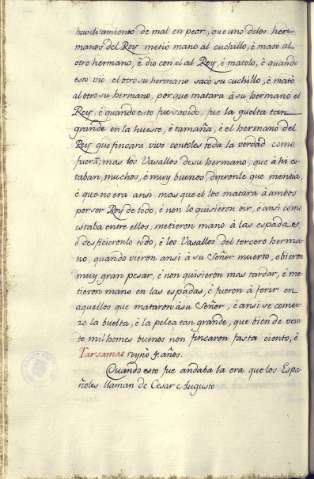 huvilivamiento de mal en peor, que uno delos her-
manos del Rey metió mano al cuchillo, é mató al
otro hermano, é dió con el al Rey, é matolo, é quando
esto vio el otro su hermano sacó su cuchillo, é mató
al otro su hermano, porque matara á su hermano el
Rey, é quando esto fue savido, fue la buelta tan
grande en la hueste, é tamaña, é el hermano del
Rey que fincara vivo contoles toda la verdad como
fuera, mas los Vasallos de su hermano, que á hi es-
taban, muchos, é muy buenos dijeronle que mentia,
é que no era ansi mas que el los matara á ambos
por ser Rey de todo, é non lo quisieron oir, é ansi como
estaba entre ellos, metieron mano á las espadas,
é desficieronlo todo, é los Vasallos del tercero herma-
no, quando vieron ansi á su Señor muerto, obieron
muy gran pesar, é non quisieron mas tardar, é me-
tieron mano en las espadas, é fueron á ferir en
aquellos que mataron á su Señor, é ansi se comen-
zo la buelta, é la pelea tan grande, que bien de vein-
te mil homes buenos non fincaron fasta ciento, é
Tarsamas reynó años.
Quando esto fue andaba la era que los Espa-
ñoles llaman de Cesar Augusto